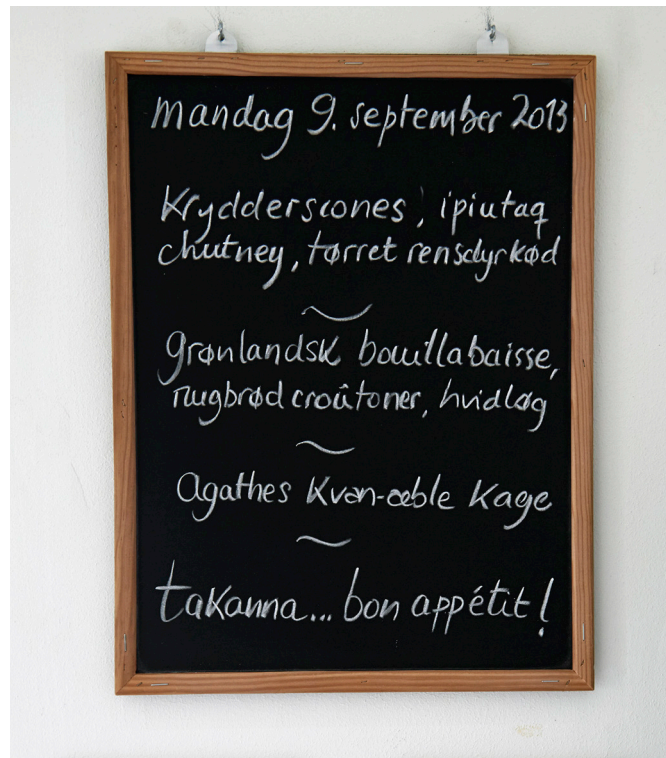 mandag 9. september 2013
Krydderscones, ipiutaq
chutney, tørret rensdyrkød
grønlandsk bouillabaisse,
rugbrød croûtoner, hvidløg
Agathes Kvan-æble Kage
takanna... bon appétit!